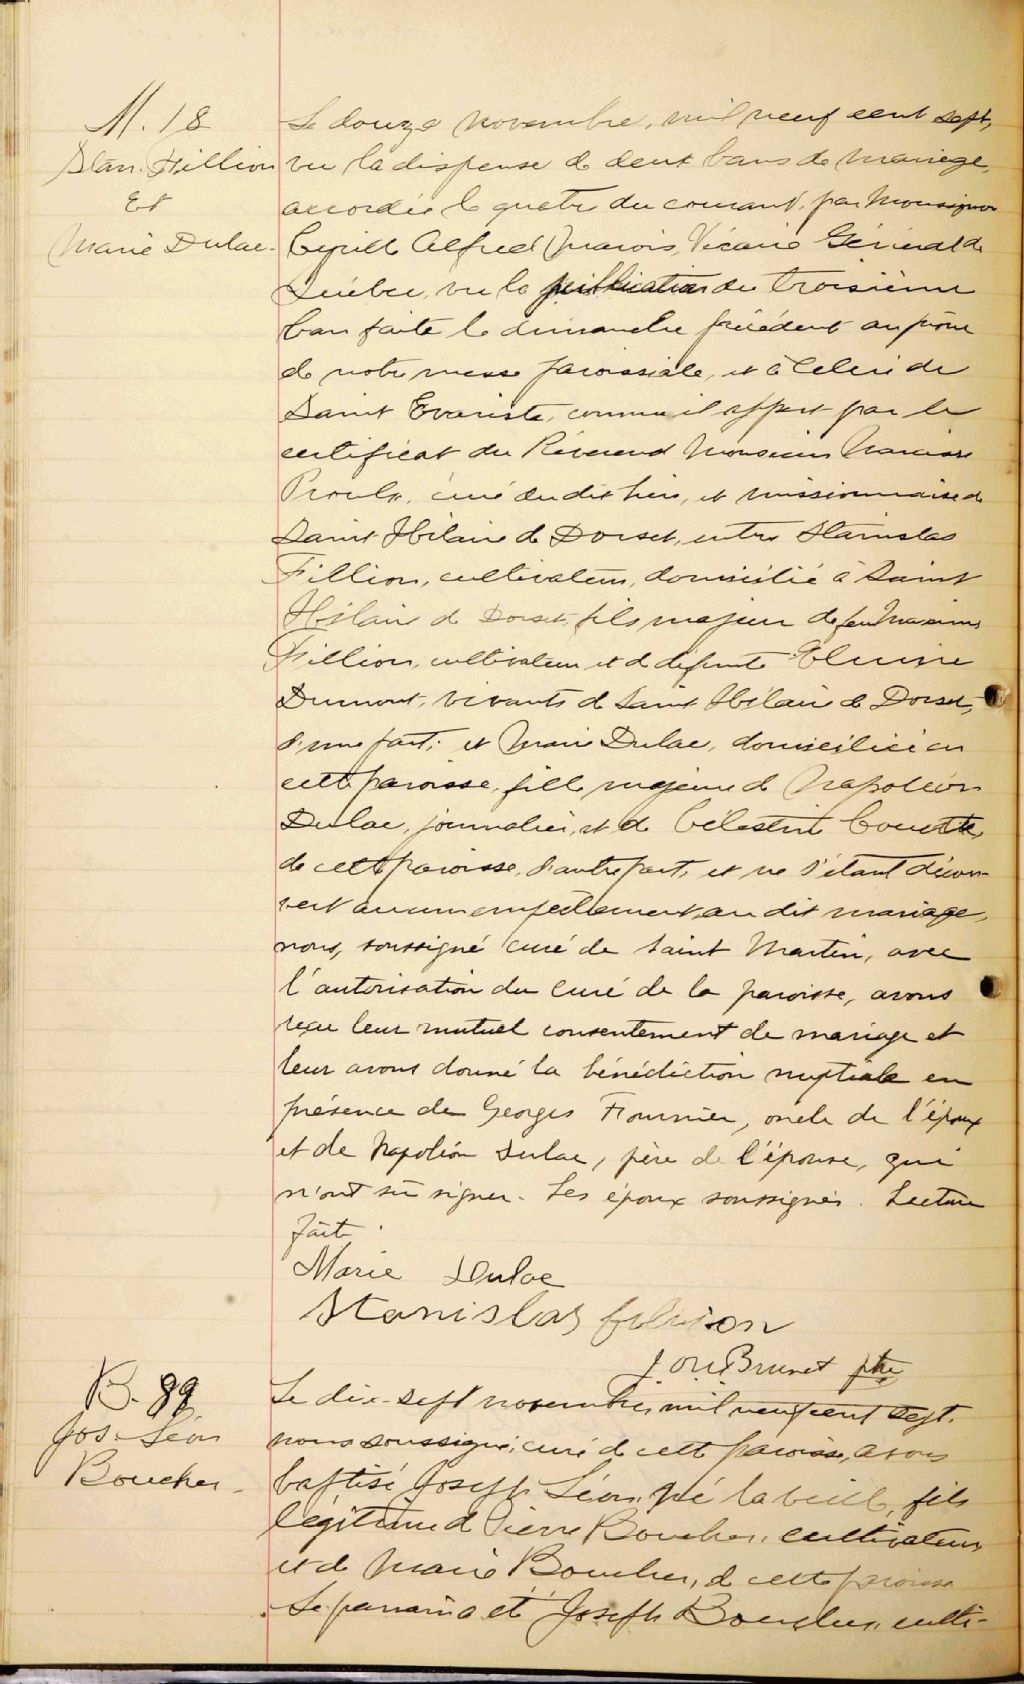 M. 18
Stan. Fillion
Et
Marie Dulac.
Le douze novembre, mil neuf cent sept,
vu la dispense de deux bans de mariage,
accordée le quatre du courant, par Monsignor
Cyrille Alfred Marois, Vicaire Général de
Québec, vu la publication du troisième
ban faite le dimanche précédent au prône
de notre messe paroissiale, et à celui de
Saint Evariste, comme il appert par le
certificat du Révérend Monsieur Narcisse
Proulx, curé du dit lieu, et missionnaire de
Saint Hilaire de Dorset, entre Stanislas
Fillion, cultivateur, domicilié à Saint
Hilaire de Dorset, fils majeur de feu Maxime
Fillion, cultivateur et de défunte
Dumont, vivants de Saint Hilaire de Dorset,
d'une part; et Marie Dulac, domiciliée en
cette paroisse, fille majeure de Napoléon
Dulac, journalier, et de Célestine
de cette paroisse, d'autre part, et ne s'étant décou-
vert aucun empêchement au dit mariage,
nous, soussigné curé de Saint Martin, avec
l'autorisation du curé de la paroisse, avons
reçu leur mutuel consentement de mariage et
leur avons donné la bénédiction nuptiale en
présence de Georges Fournier, oncle de l'époux
et de Napoléon Dulac, père de l'épouse, qui
n'ont su signer. Les époux soussignés. Lecture
faite.
Marie Dulac
Stanislas
Brunet ptre
B. 89
Jos. Léon
Boucher.
Le dix-sept novembre, mil neuf cent sept,
nous soussigné, curé de cette paroisse, avons
baptisé Joseph Léon, né la veille, fils
légitime de Pierre Boucher, cultivateur,
et de Marie Boucher, de cette paroisse
Le parrain a été Joseph Boucher, culti-